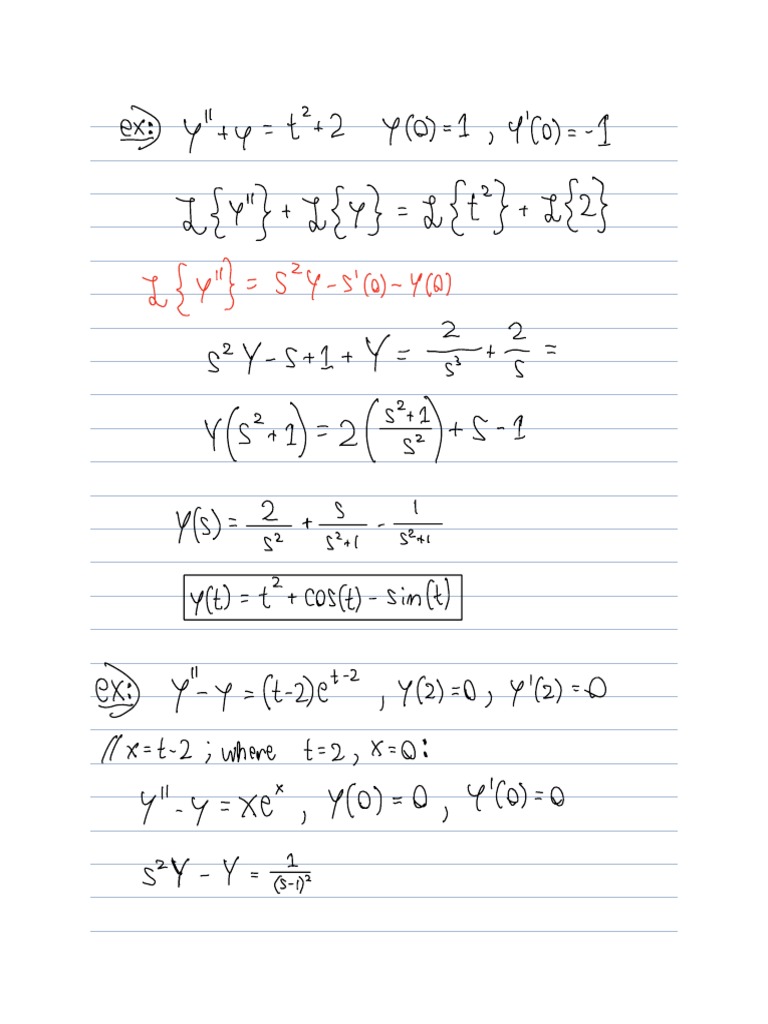 ex: y'' + y = t² + 2 y(0) = 1 , y'(0) = -1
ℒ{y''} + ℒ{y} = ℒ{t²} + ℒ{2}
ℒ{y''} = s²Y - s'(0) - y(0)
s²Y - s + 1 + Y = 2/s³ + 2/s =
Y(s² + 1) = 2((s² + 1)/s²) + s - 1
Y(s) = 2/s² + s/(s² + 1) - 1/(s² + 1)
y(t) = t² + cos(t) - sin(t)
ex: y'' - y = (t-2)e^(t-2) , y(2) = 0, y'(2) = 0
// x = t-2 ; where t = 2, x = 0:
y'' - y = xe^x , y(0) = 0 , y'(0) = 0
s²Y - Y = 1/(s-1)²